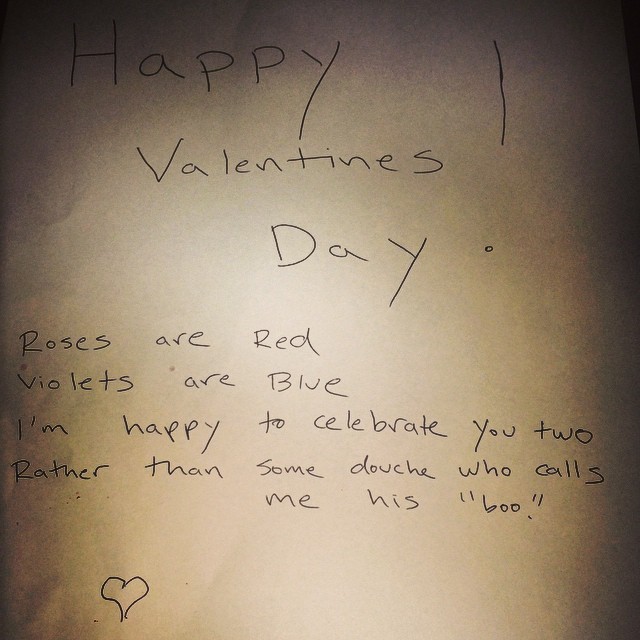 Happy
Valentines
Day !
Roses are Red
Violets are Blue
I'm happy to celebrate you two
Rather than some douche who calls
me his "boo."